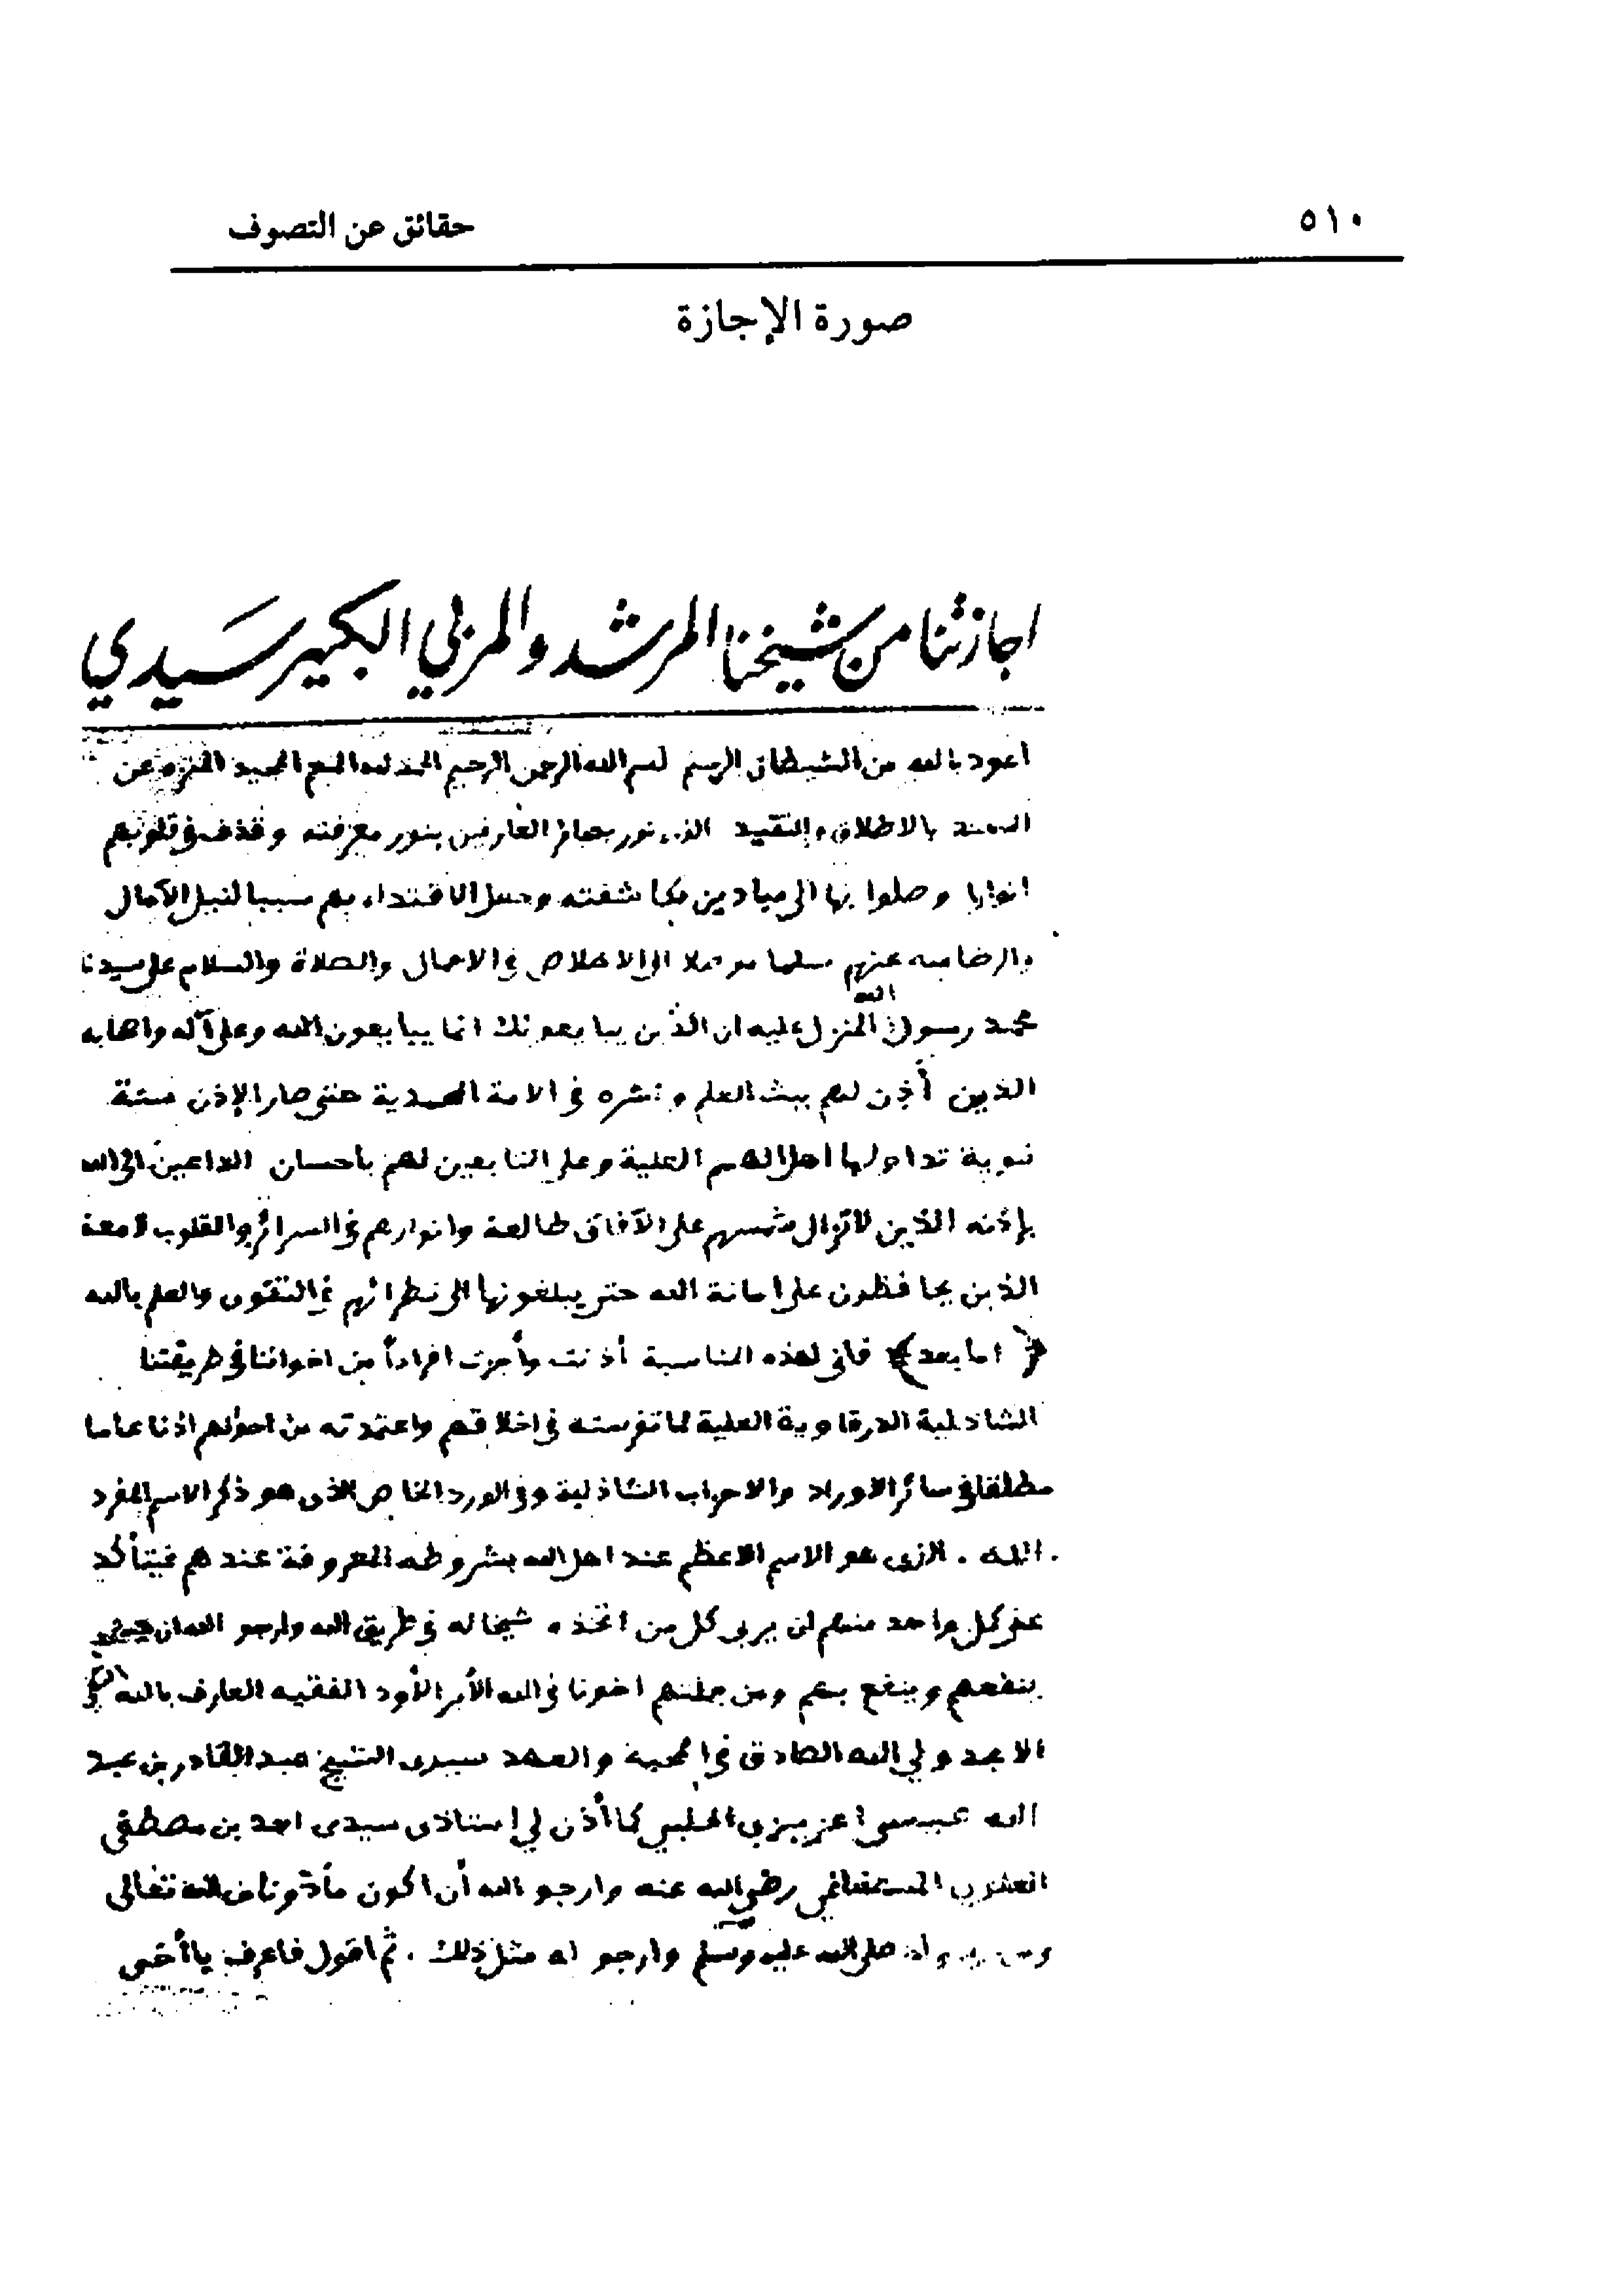 ٥١٠
حقائق عن التصوف
صورة الإجازة
اجازتنا من شيخنا المرشد والمربي الكبير سيدي
اعوذ بالله من الشيطان الرجيم بسم الله الرحمن الرحيم الحمد لله المجيد المنزه عن
بالاطلاق والتقييد الذي نور بصائر العارفين بنور معرفته وقذف في قلوبهم
انوارا وصلوا بها الى ميادين مكاشفته وجعل الاقتداء بهم سببا لنيل الآمال
والرضا منه عنهم سلما موصلا الى الاخلاص في الاعمال والصلاة والسلام على سيدنا
محمد رسول الله المنزل عليه ان الذين يبايعونك انما يبايعون الله وعلى آله واصحابه
الذين أذن لهم ببث العلم ونشره في الامة المحمدية حتى صار الإذن سنة
نبوية تداولها اهل الهمم العلية وعلى التابعين لهم بأحسان الداعين الى الله
بإذنه الذين لا تزال شمسهم على الآفاق طالعة وانوارهم في السرائر والقلوب لامعة
الذين يحافظون على امانة الله حتى يبلغونها الى نظرائهم في التقوى والعلم بالله
﴿ اما بعد ﴾ فاني لهذه المناسبة أذنت وأجزت افراداً من اخواننا في طريقتنا
الشاذلية الدرقاوية العلية لما تفرسته في اخلاقهم واعتمدته من احوالهم اذنا عاما
مطلقا في سائر الاوراد والاحزاب الشاذلية وفي الورد الخاص الذي هو ذكر الاسم المفرد
. الله . الذي هو الاسم الاعظم عند اهل الله بشروطه المعروفة عندهم فيتأكد
على كل واحد منهم لن يربى كل من اتخذه شيخا له في طريق الله وارجو الله ان
ينفعهم وينفع بهم ومن جملتهم اخونا في الله الأبر الأود الفقيه العارف بالله
الامجد ولي الله الصادق في المحبة والعهد سيدى الشيخ عبد القادر بن عبد
الله عيسى عزيزي الحلبي كما أذن لي استاذى سيدى احمد بن مصطفى
العلوي المستغانمي رضي الله عنه وارجو الله أن اكون مأذونا من الله تعالى
ومن صلى الله عليه وسلم وارجو له مثل ذلك . ثم اقول فاعرف يا أخى